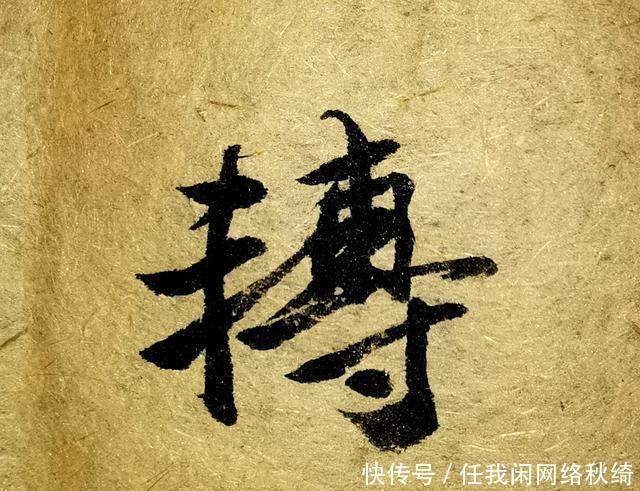 轉
快传号/任我闲网络秋绮